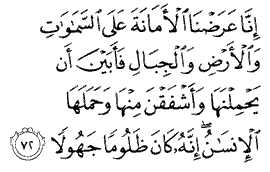 إِنَّا عَرَضْنَا ٱلْأَمَانَةَ عَلَى ٱلسَّمَٰوَٰتِ
وَٱلْأَرْضِ وَٱلْجِبَالِ فَأَبَيْنَ أَن
يَحْمِلْنَهَا وَأَشْفَقْنَ مِنْهَا وَحَمَلَهَا
ٱلْإِنسَٰنُ ۖ إِنَّهُۥ كَانَ ظَلُومًا جَهُولًا ٧٢